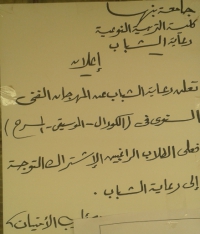 جامعة بنها
كلية التربية النوعية
رعاية الشباب
إعلان
تعلن رعاية الشباب عن المهرجان الفنى
السنوى فى (الكورال - الموسيقى - المسرح)
فعلى الطلاب الراغبين الإشتراك التوجة
إلى رعاية الشباب.